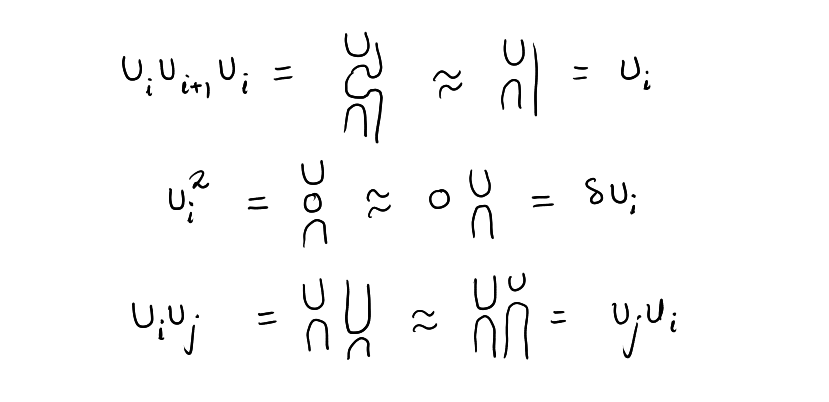 U_i U_{i+1} U_i = ≈ = U_i
U_i^2 = ≈ = δU_i
U_i U_j = ≈ = U_j U_i